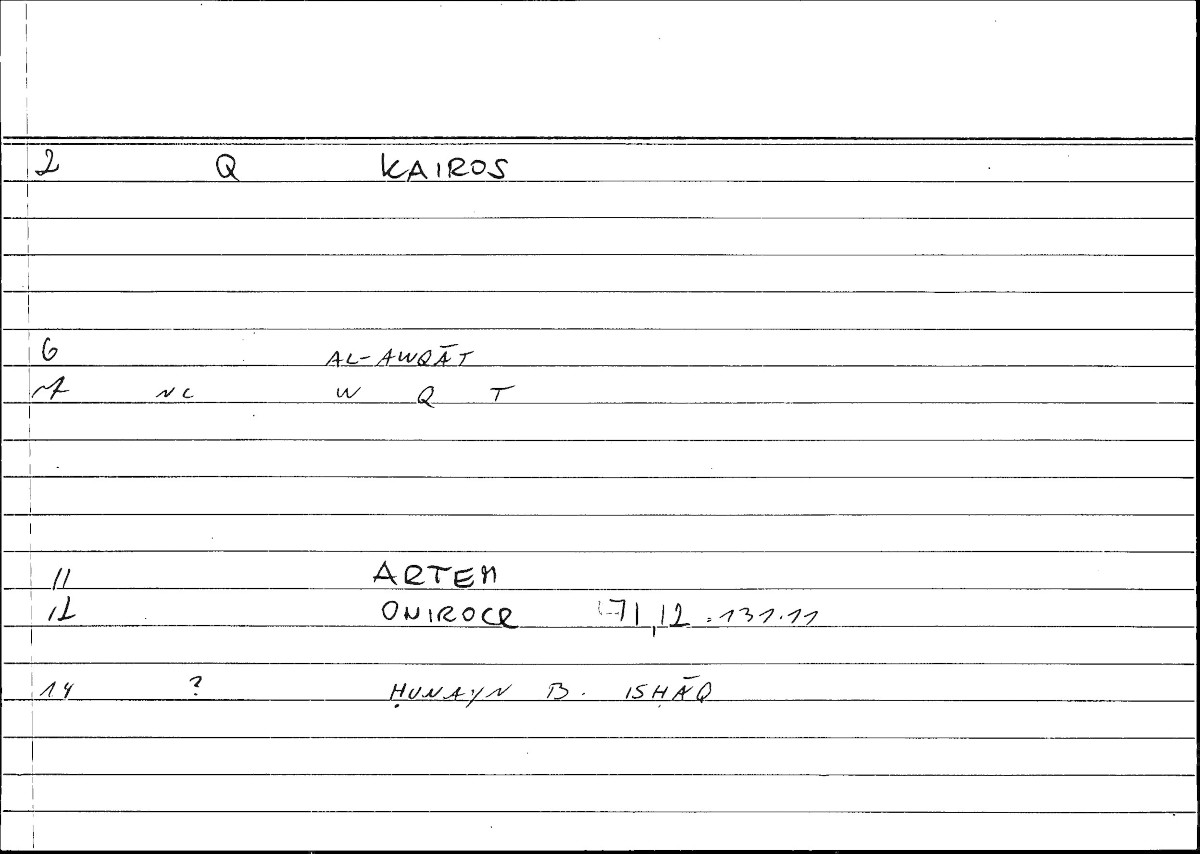 2 Q KAIROS
6 AL-AWQĀT
7 NC W Q T
11 ARTEM
12 ONIROCR 71,12 = 131.11
14 ? ḤUNAYN B. ISḤĀQ